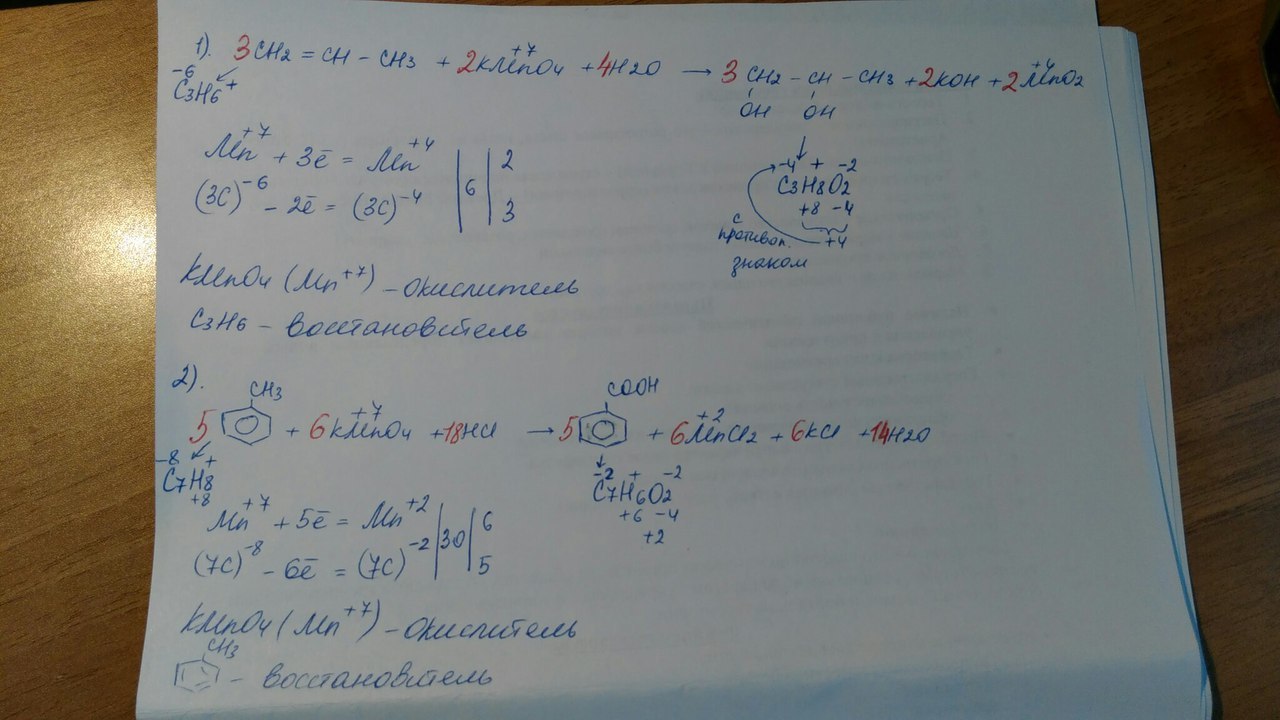 1). 3CH2 = CH - CH3 + 2KMnO4 + 4H2O → 3 CH2 - CH - CH3 + 2KOH + 2MnO2
+7 +4
-6 +
C3H6
OH OH
Mn+7 + 3ē = Mn+4 | 6 | 2
(3C)-6 - 2ē = (3C)-4 | | 3
-4 + -2
C3H8O2
+8 -4
+4
с
противоп.
знаком
KMnO4 (Mn+7) - окислитель
C3H6 - восстановитель
2).
CH3 COOH
5 + 6KMnO4 + 18HCl → 5 + 6MnCl2 + 6KCl + 14H2O
+7 +2
-8 +
C7H8
+8
-2 + -2
C7H6O2
+6 -4
+2
Mn+7 + 5ē = Mn+2 | 30 | 6
(7C)-8 - 6ē = (7C)-2 | | 5
KMnO4 (Mn+7) - окислитель
CH3
- восстановитель